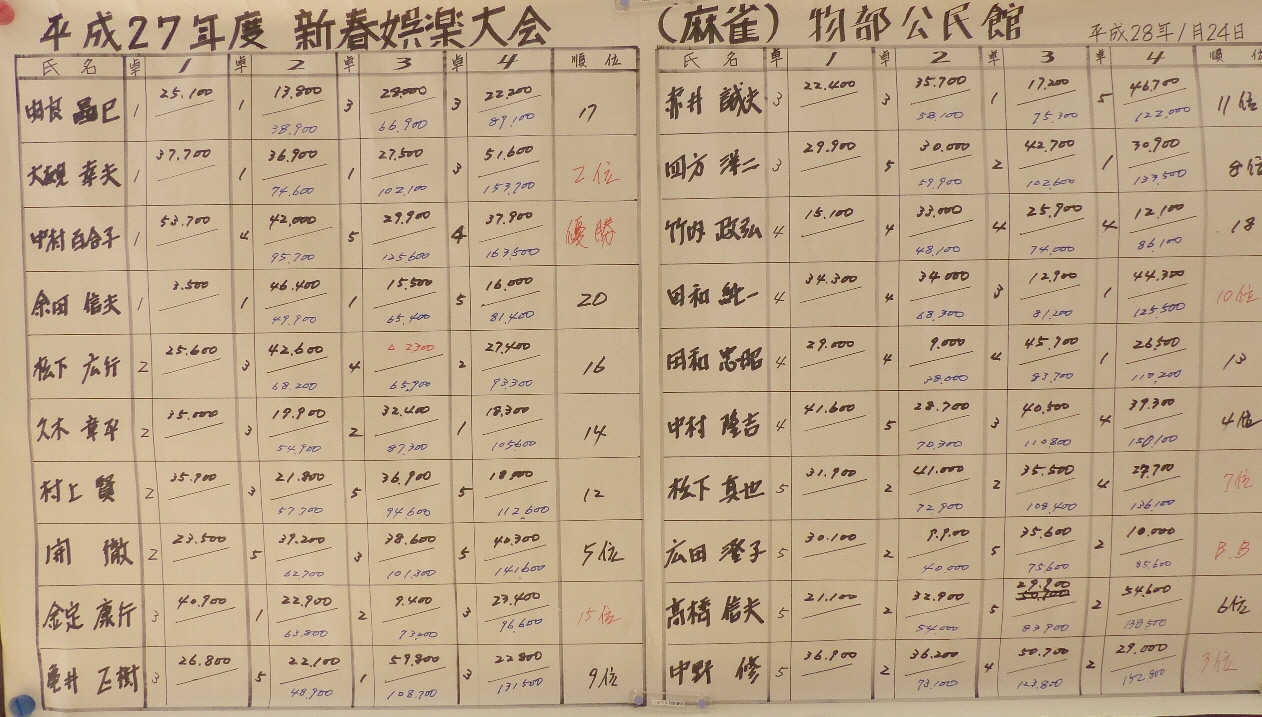 平成27年度 新春娯楽大会 (麻雀) 物部公民館 平成28年1月24日
氏名 卓 1 卓 2 卓 3 卓 4 順位
1 25.100 1 13.800 3 28.000 3 22.200 17
38.900 66.900 89.100
大槻 幸夫 1 37.700 1 36.900 1 27.500 3 51.600 2位
74.600 102.100 153.700
中村 百合子 1 53.700 4 42.000 5 29.900 4 37.900 優勝
95.700 125.600 163.500
余田 信夫 1 3.500 1 46.400 1 15.500 5 16.000 20
49.900 65.400 81.400
松下 広行 2 25.600 3 42.600 4 △2300 2 27.400 16
68.200 65.900 93.300
久木 幸平 2 35.000 3 19.900 2 32.400 1 18.300 14
54.900 87.300 105600
村上 賢 2 35.900 3 21.800 5 36.900 5 18.000 12
57.700 94.600 112.600
開 徹 2 23.500 5 39.200 3 38.600 5 40.300 5位
62.700 101.300 141.600
金定 康行 3 40.900 1 22.900 2 9.400 3 23.400 15位
63.800 73.200 96.600
亀井 正樹 3 26.800 5 22.100 1 59.800 3 22.800 9位
48.900 108.700 131500
氏名 卓 1 卓 2 卓 3 卓 4 順位
赤井 誠夫 3 22.400 3 35.700 1 17.200 5 46.700 11位
58.100 75.300 122.000
四方 洋二 3 29.900 5 30.000 2 42.700 1 30.900 8位
59.900 102.600 133.500
竹内 政弘 4 15.100 4 33.000 4 25.900 4 12.100 18
48.100 74.000 86.100
田和 純一 4 34.300 4 34.000 3 12.900 1 44.300 10位
68.300 81.200 125.500
田和 忠昭 4 29.000 4 9.000 4 45.700 1 26.500 13
38.000 83.700 110.200
中村 隆吉 4 41.600 5 28.700 3 40.500 4 39.300 4位
70.300 110.800 150.100
松下 真也 5 31.900 2 41.000 2 35.500 4 27.700 7位
72.900 108.400 136.100
広田 澄子 5 30.100 2 9.900 5 35.600 2 10.000 B.B
40.000 75.600 85.600
高橋 信夫 5 21.100 2 32.900 5 29.900 2 54.600 6位
54.000 83.900 138.500
中野 修 5 36.900 2 36.200 4 50.700 2 29.000 3位
73.100 123.800 152.800